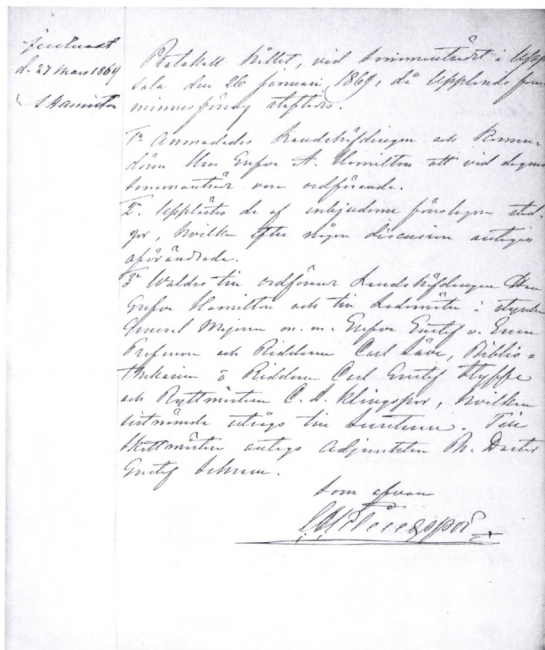 Justeradt
d. 27 Mars 1869
A Hamilton
Protokoll hållet, vid sammanträdet i Upp-
sala den 26 Januari 1869, då Upplands forn-
minnesförening stiftades.
1º Anmodades Landshöfdingen och Komen-
dören Herr Grefve A. Hamilton att vid dagens
sammanträde vara ordförande.
2º Upplästes de af inbjudarne föreslagna stad-
gar, hvilka efter någon discussion antogos
oförändrade.
3º Waldes till ordförande Landshöfdingen Herr
Grefve Hamilton och till Ledamöter i styrelsen
General Majoren m. m. Grefve Gustaf v. Essen
Professorn och Riddaren Carl Säve, Biblio-
thekarien o Riddaren Carl Gustaf Styffe
och Ryttmästaren C. A. Klingspor, hvilken
sistnämde utsågs till Secreterare. Till
Skattmästare antogs Adjuncten Ph. Doctor
Gustaf
Som ofvan
C A Klingspor